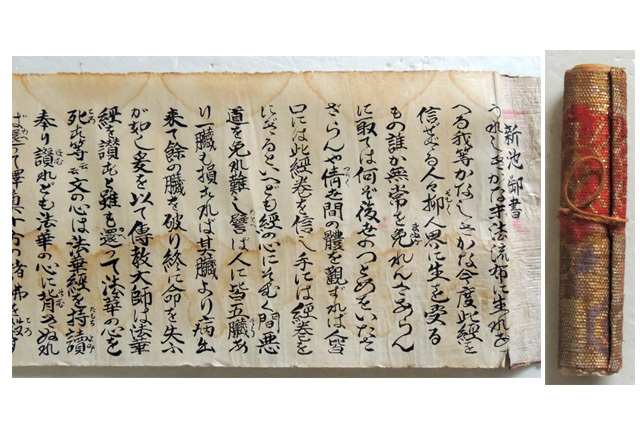 新池御書
うれしきかな末法流布に生れあ
へる我等かなしきかな今度此經を
信ぜざる人々抑人界に生を受る
もの誰か無常を免れんさあらん
に取ては何ぞ後世のつとめをいたさ
ざらんや倩世間の體を觀ずれば人皆
口には此經を信じ手には經巻を
にぎるといへども經の心にそむく間悪
道を免れ難し譬ば人に皆五臓あ
り一臓も損ずれば其臓より病出
来て餘の臓を破り終に命を失ふ
が如し爰を以て傳教大師は法華
經を讃むと雖も還って法華の心を
死す等云云文の心は法華經を持ち讀
奉り讃れども法華の心に背きぬれ
ば還て釋尊十方の諸佛を殺す